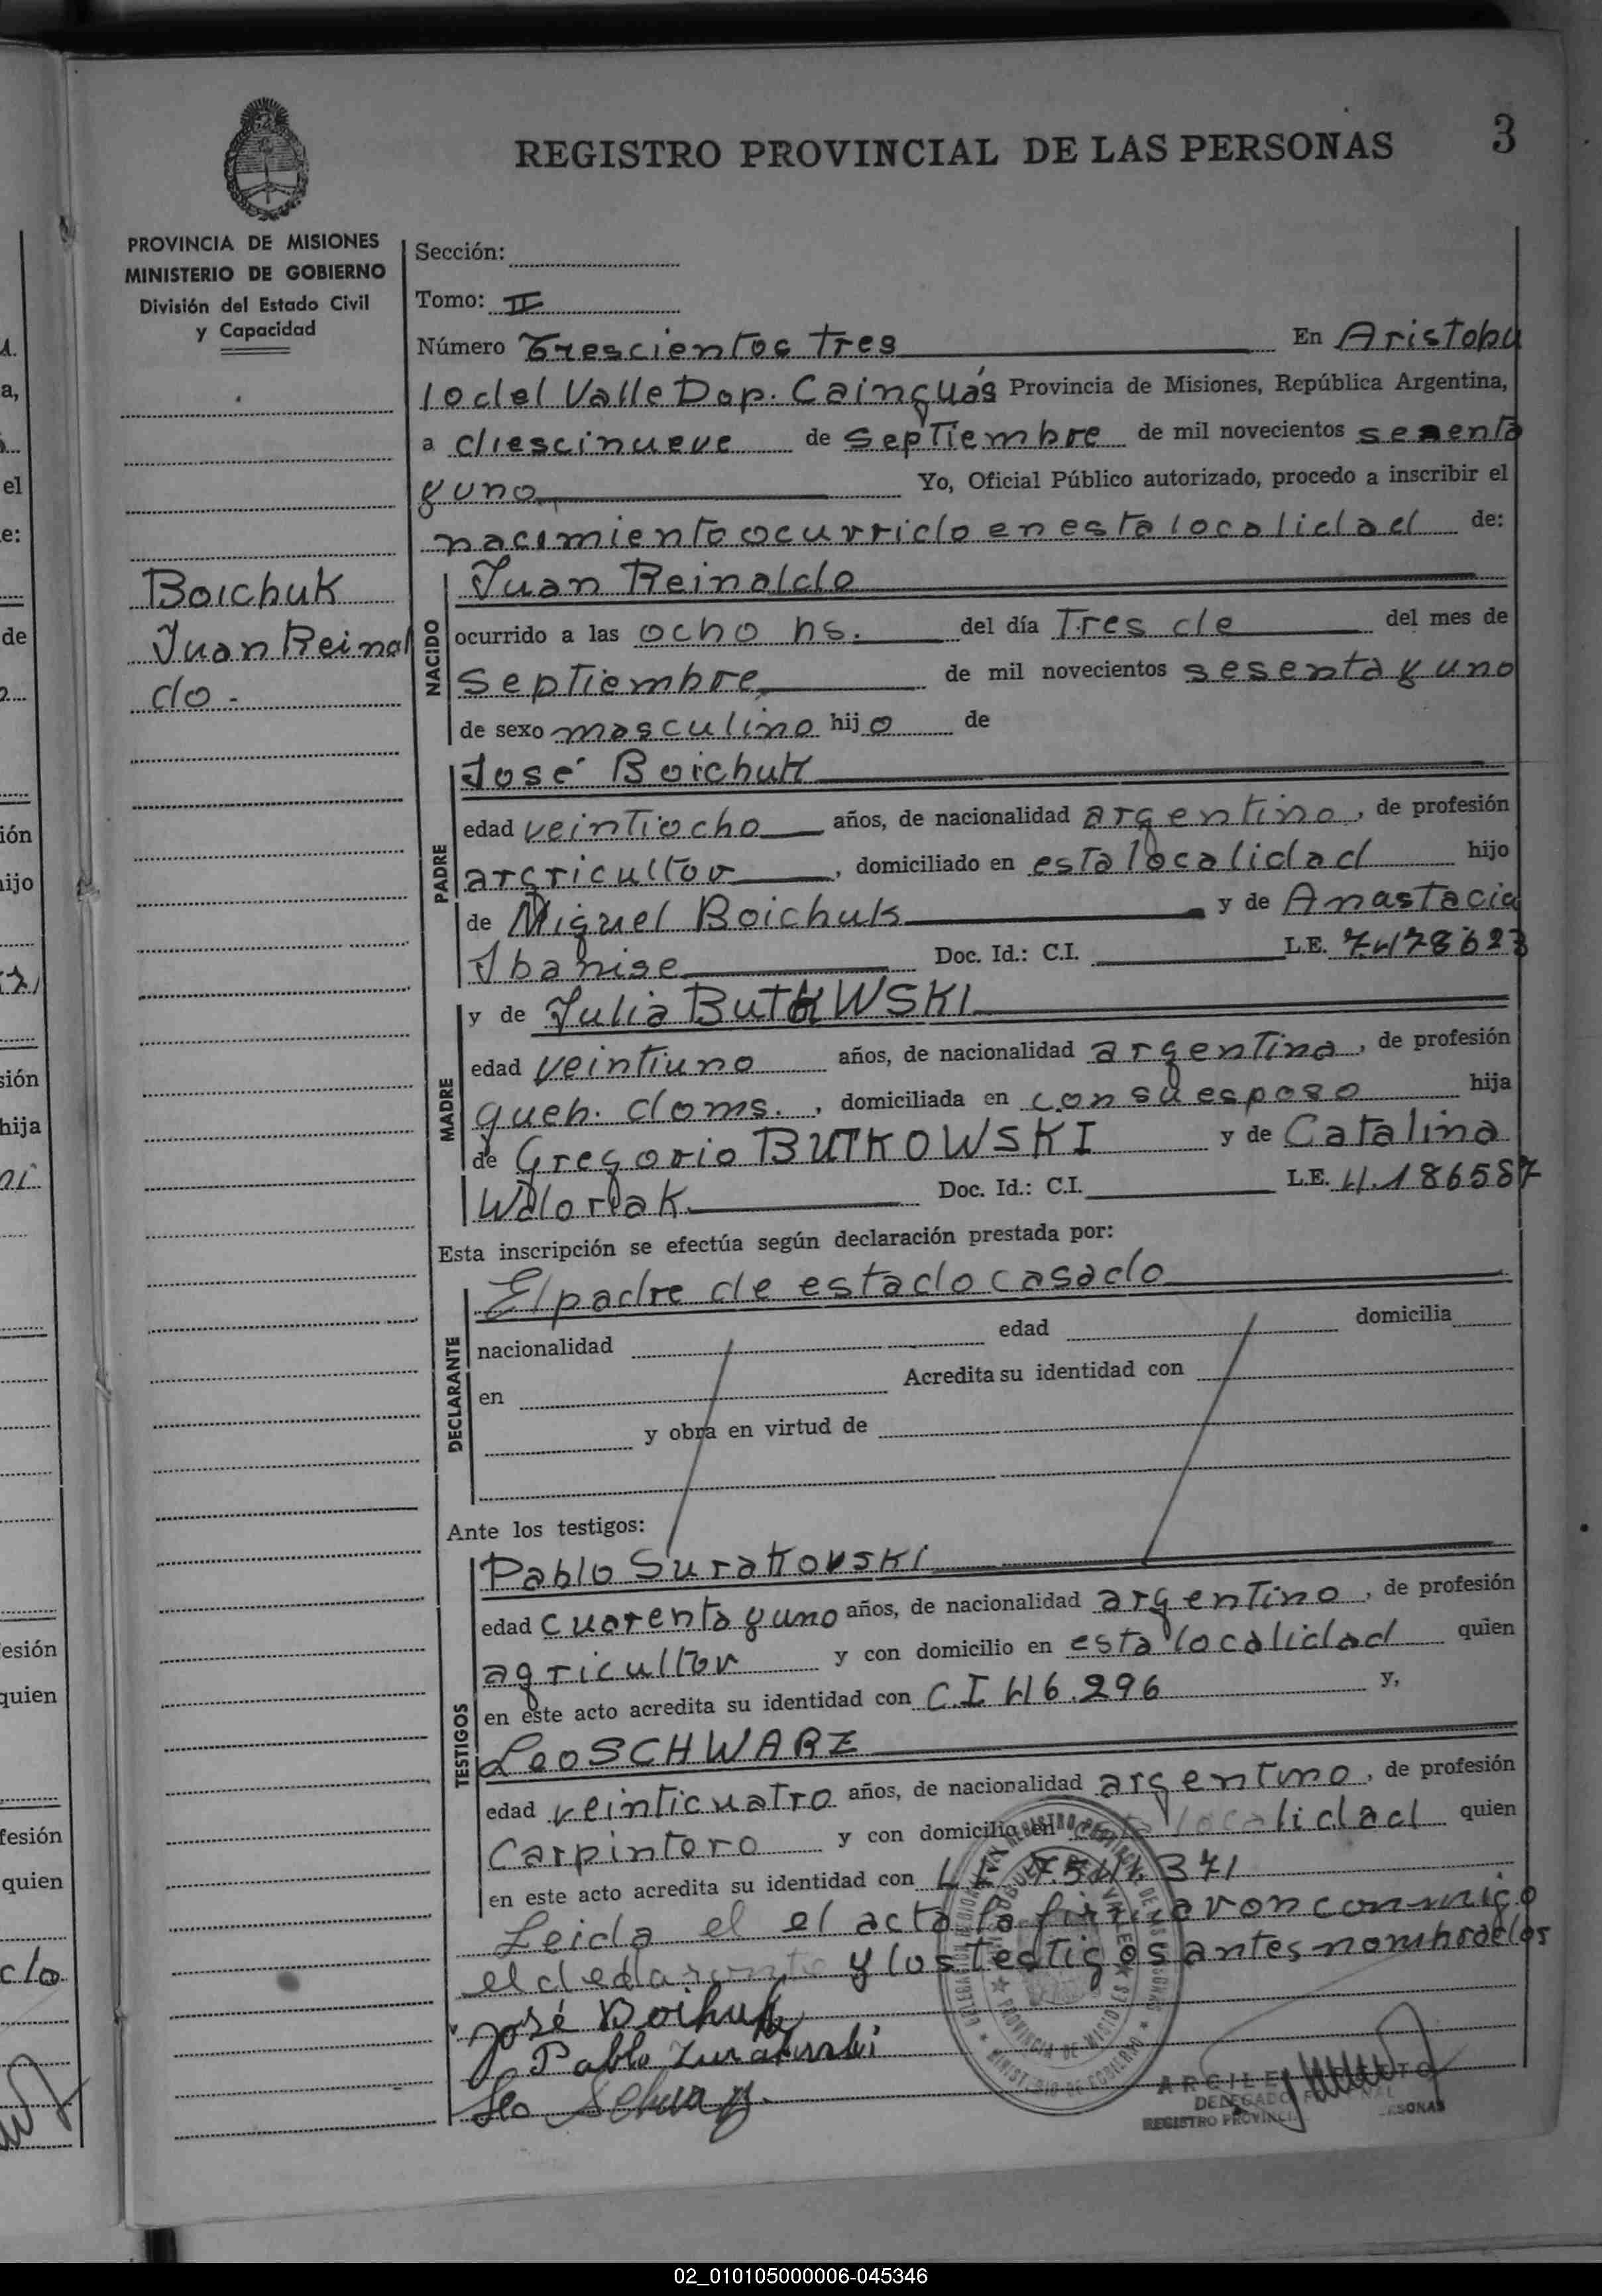 REGISTRO PROVINCIAL DE LAS PERSONAS 3
PROVINCIA DE MISIONES
MINISTERIO DE GOBIERNO
División del Estado Civil
y Capacidad
Boichuk
Juan Reinal
do -
Sección:
Tomo: II
Número Trescientos tres En Aristobu
lo del Valle Dep. Cainguás Provincia de Misiones, República Argentina,
a diescinueve de septiembre de mil novecientos sesenta
y uno Yo, Oficial Público autorizado, procedo a inscribir el
nacimiento ocurrido en esta localidad de:
NACIDO
Juan Reinaldo
ocurrido a las ocho hs. del día Tres de del mes de
septiembre de mil novecientos sesenta y uno
de sexo masculino hijo de
PADRE
José Boichuk
edad veintiocho años, de nacionalidad argentino, de profesión
argricultor, domiciliado en esta localidad hijo
de Miguel Boichuk y de Anastacia
Doc. Id.: C.I. L.E. 7.478623
MADRE
y de Julia
edad veintiuno años, de nacionalidad argentina, de profesión
queh. doms., domiciliada en con su esposo hija
de Gregorio BUTKOWSKI y de Catalina
Doc. Id.: C.I. L.E. 4.186587
Esta inscripción se efectúa según declaración prestada por:
DECLARANTE
El padre de estado casado
nacionalidad edad domicilia
en Acredita su identidad con
y obra en virtud de
Ante los testigos:
TESTIGOS
Pablo Surakovski
edad cuarenta y uno años, de nacionalidad argentino, de profesión
agricultor y con domicilio en esta localidad quien
en este acto acredita su identidad con C.I. 46.296 y,
Leo SCHWARZ
edad veinticuatro años, de nacionalidad argentino, de profesión
Carpintero y con domicilio en esta localidad quien
en este acto acredita su identidad con L.E. 371
Leida el el acta la firmaron conmigo
el declarante y los testigos antes nombrados
José Boihuk
Pablo
Leo Schwarz
PROVINCIA DE MISIONES
MINISTERIO DE GOBIERNO
DELEGADO
REGISTRO PROVINCIAL
02_010105000006-045346